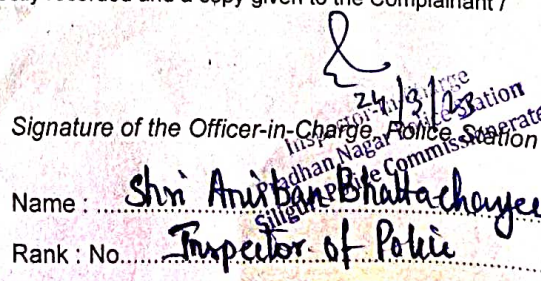 recorded and a copy given to the Complainant /
24/3/23
Inspector-in-Charge
Pradhan Nagar Police Station
Siliguri Police Commissionerate
Signature of the Officer-in-Charge, Police Station
Name : Shri Anirban Bhattacharjee
Rank : No. Inspector of Police